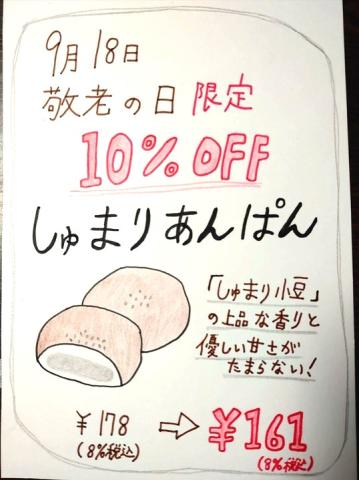 9月18日
敬老の日 限定
10% OFF
しゅまりあんぱん
「しゅまり小豆」
の上品な香りと
優しい甘さが
たまらない!
¥178 ⇨ ¥161
(8%税込) (8%税込)